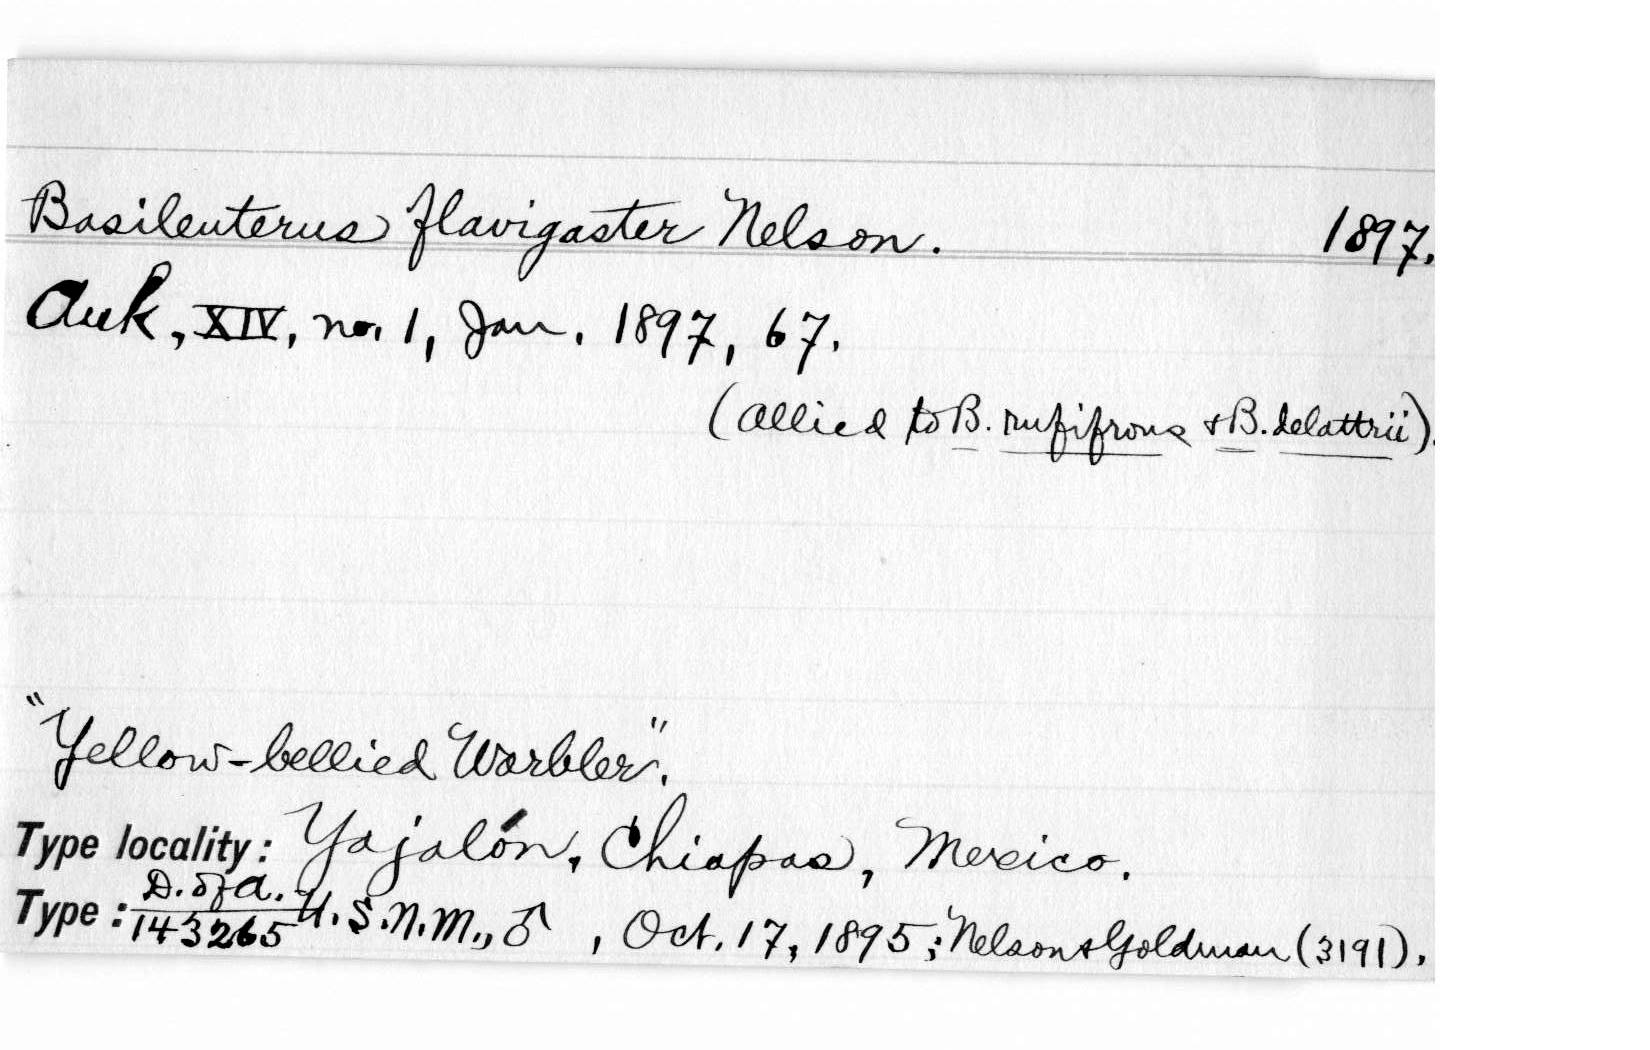 Basileuterus flavigaster Nelson. 1897.
Auk, XIV, no. 1, Jan. 1897, 67.
(Allied to B. rufifrons & B. delattrii).
"Yellow-bellied Warbler".
Type locality: Yajalón, Chiapas, Mexico.
D. of A.
Type: 143265 U.S.N.M., ♂, Oct. 17, 1895; Nelson & Goldman (3191).